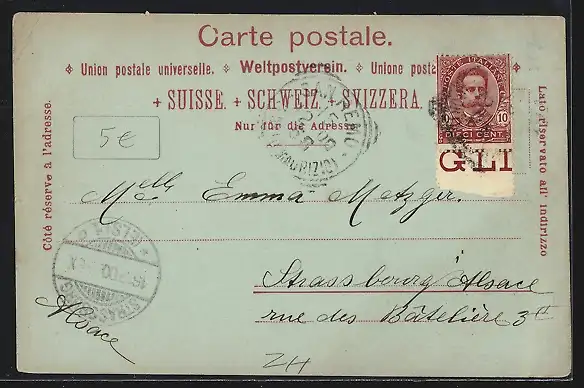 Carte postale.
Union postale universelle. Weltpostverein. Unione posta
+ SUISSE. + SCHWEIZ. + SVIZZERA.
Nur für die Adresse
Côté réservé à l'adresse.
Lato riservato all' indirizzo
POSTE ITALIANE
10
DIECI CENT.
GLI
SAN REMO
5€
Melle Emma Metzger.
Strassbourg Alsace
rue des Bâtelière 3
Alsace
ZH